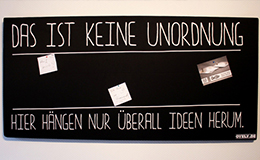 DAS IST KEINE UNORDNUNG
HIER HÄNGEN NUR ÜBERALL IDEEN HERUM.